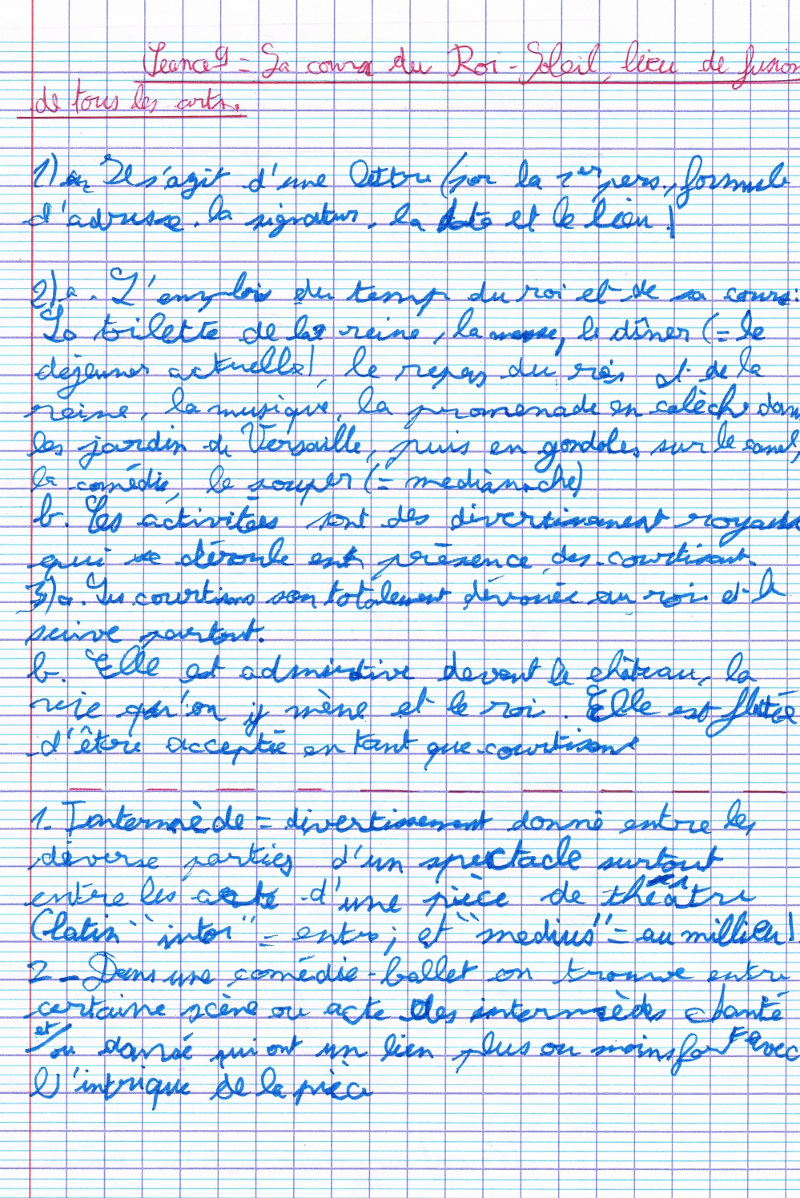 Séance 9 = La cour du Roi-Soleil, lieu de fusion
de tous les arts.
1) Il s'agit d'une lettre (par la 1er pers, formule
d'adresse, la signatur, la date et le lieu)
2) a. L'emplois du temp du roi et de sa cour :
La toilette de la reine, la messe, le dîner (= le
déjeuner actuelle), le repas du roi et de la
reine, la musique, la promenade en calèch dans
les jardin de Versaille, puis en gondoles sur le canal,
la comédie, le souper (= medianoche)
b. Les activitées sont des divertissement royaux
qui se déroule en présence des courtisant.
3) a. Les courtisans son totalement dévouée au roi et le
suive partout.
b. Elle est admirative devant le château, la
vie qu'on y mène et le roi. Elle est flatée
d'être acceptée en tant que courtisane
1. Intermède = divertissement donné entre les
déverse parties d'un spectacle surtout
entre les acte d'une pièce de théâtre
(latin "inter" = entre; et "medius" = au millieu)
2 - Dans une comédie-ballet on trouve entre
certaine scène ou acte des intermèdes chanté
et/ou dansé qui ont un lien plus ou moins fort avec
l'intrique de la pièce